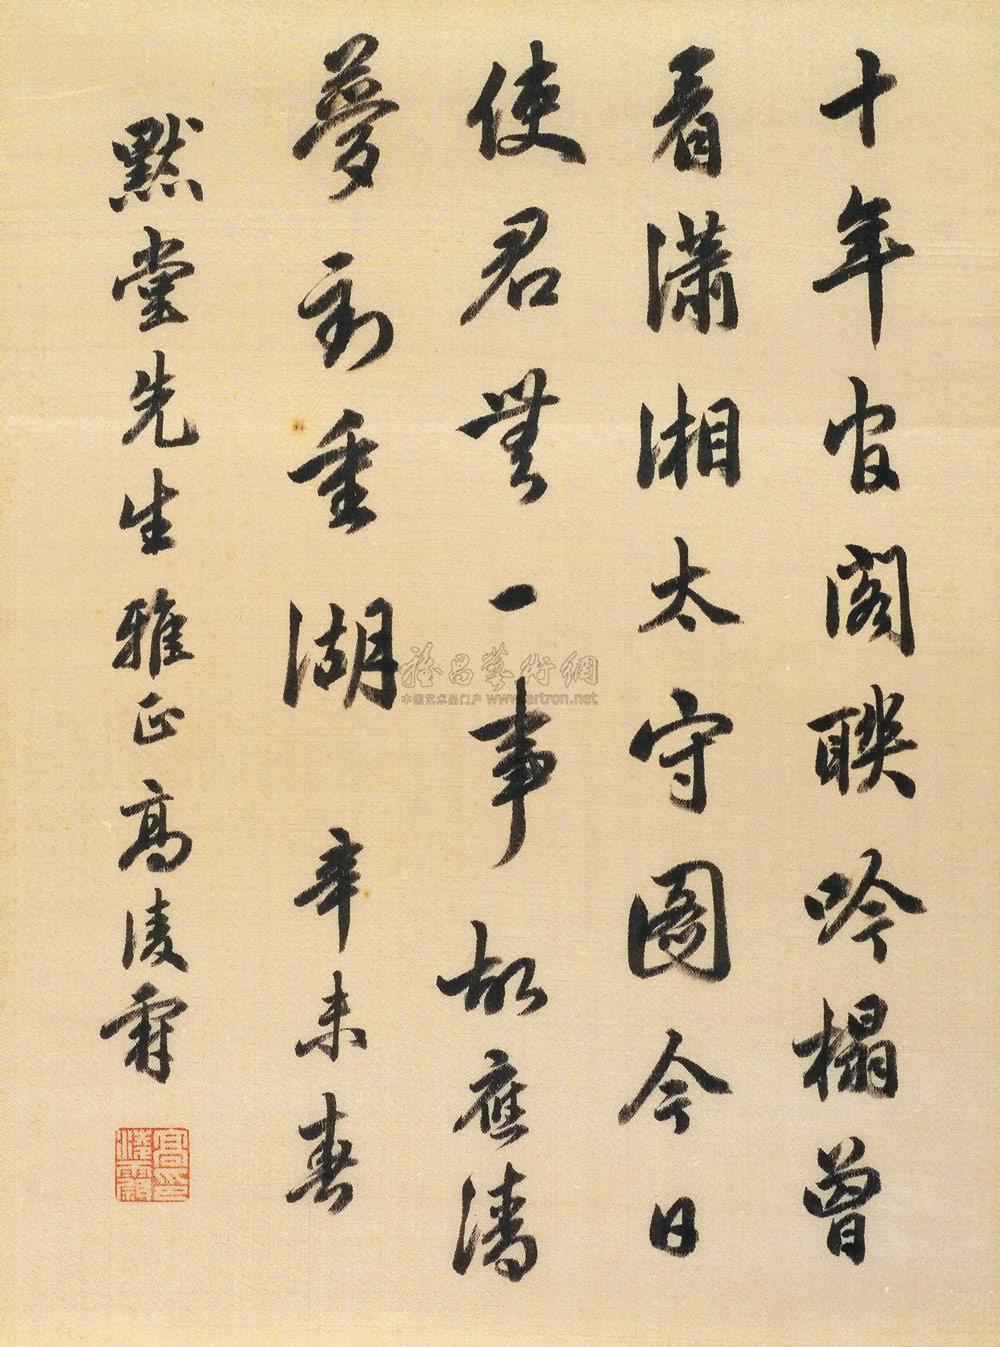 十年官閣聯吟榻曾
看瀟湘太守圖今日
使君無一事故應清
夢到重湖 辛未春
默堂先生雅正高凌霨
雅昌藝術網
中国艺术品门户 www.artron.net